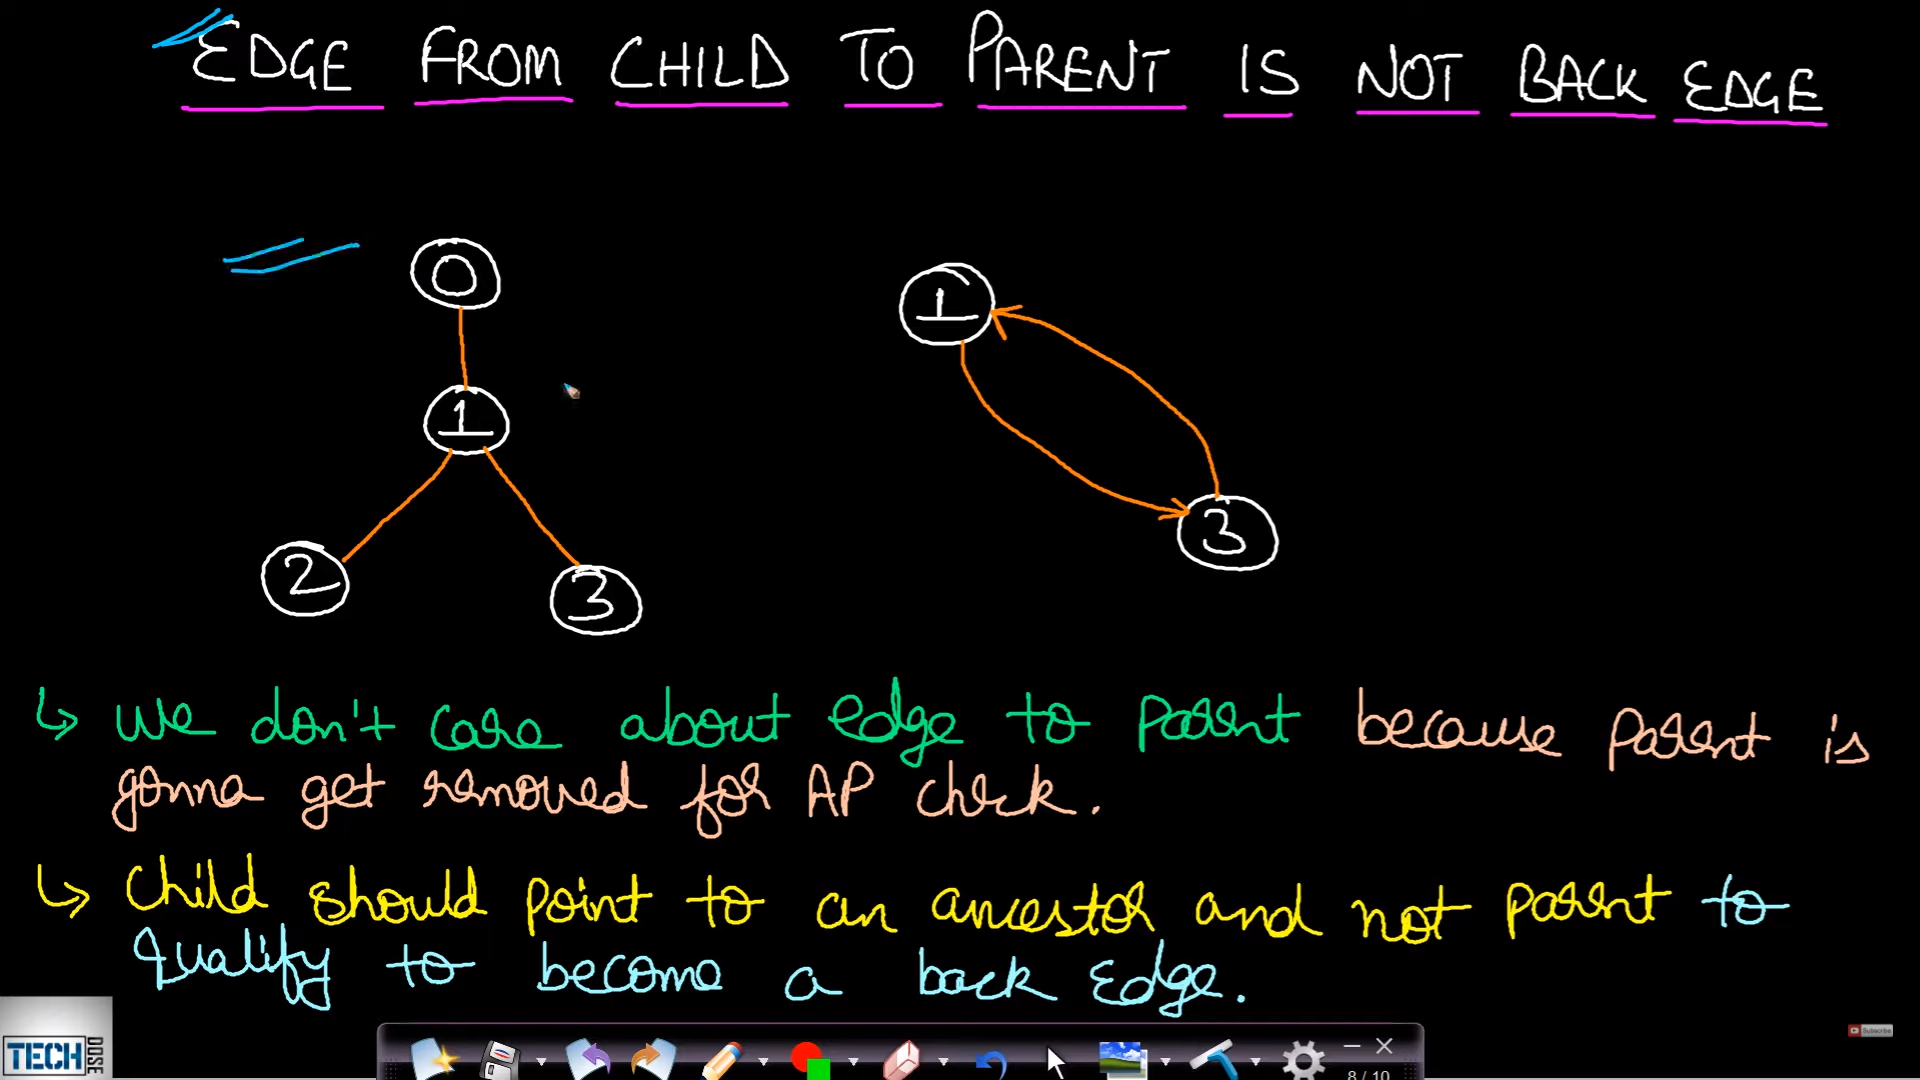 EDGE FROM CHILD TO PARENT IS NOT BACK EDGE
0
1
1
3
2
3
↳ we don't care about edge to parent because parent is
gonna get removed for AP check.
↳ Child should point to an ancestor and not parent to
Qualify to become a back Edge.
TECH DOSE
Subscribe
8 / 10